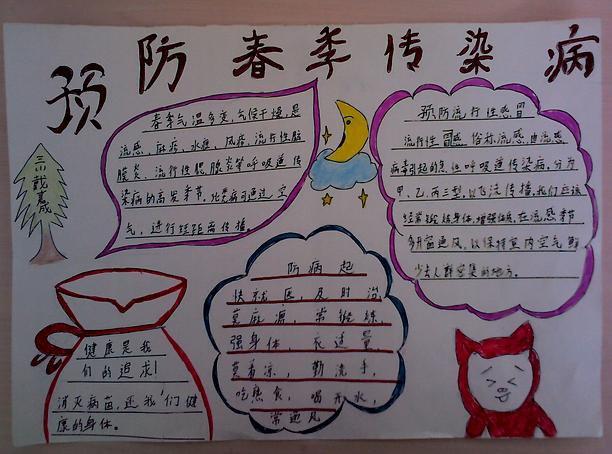 预防春季传染病
三川戴嘉成
春季气温多变,气候干燥,是
流感、麻疹、水痘、风疹、流行性脑
膜炎、流行性腮腺炎等呼吸道传
染病的高发季节,此类病可通过空
气,进行短距离传播。
预防流行性感冒
流行性感冒俗称流感,由流感
病毒引起的急性呼吸道传染病,分为
甲、乙、丙三型,以飞沫传播,我们应该
经常锻炼身体,增强体质,在流感季节
多开窗通风,以保持室内空气新
少去人群密集的地方。
防病起
快就医,及时治
莫麻源,常锻炼
强身体,衣适量
莫着凉,勤洗手,
吃熟食,喝开水,
常通风
健康是我
们的追求!
消灭病苗,还我们健
康的身体。